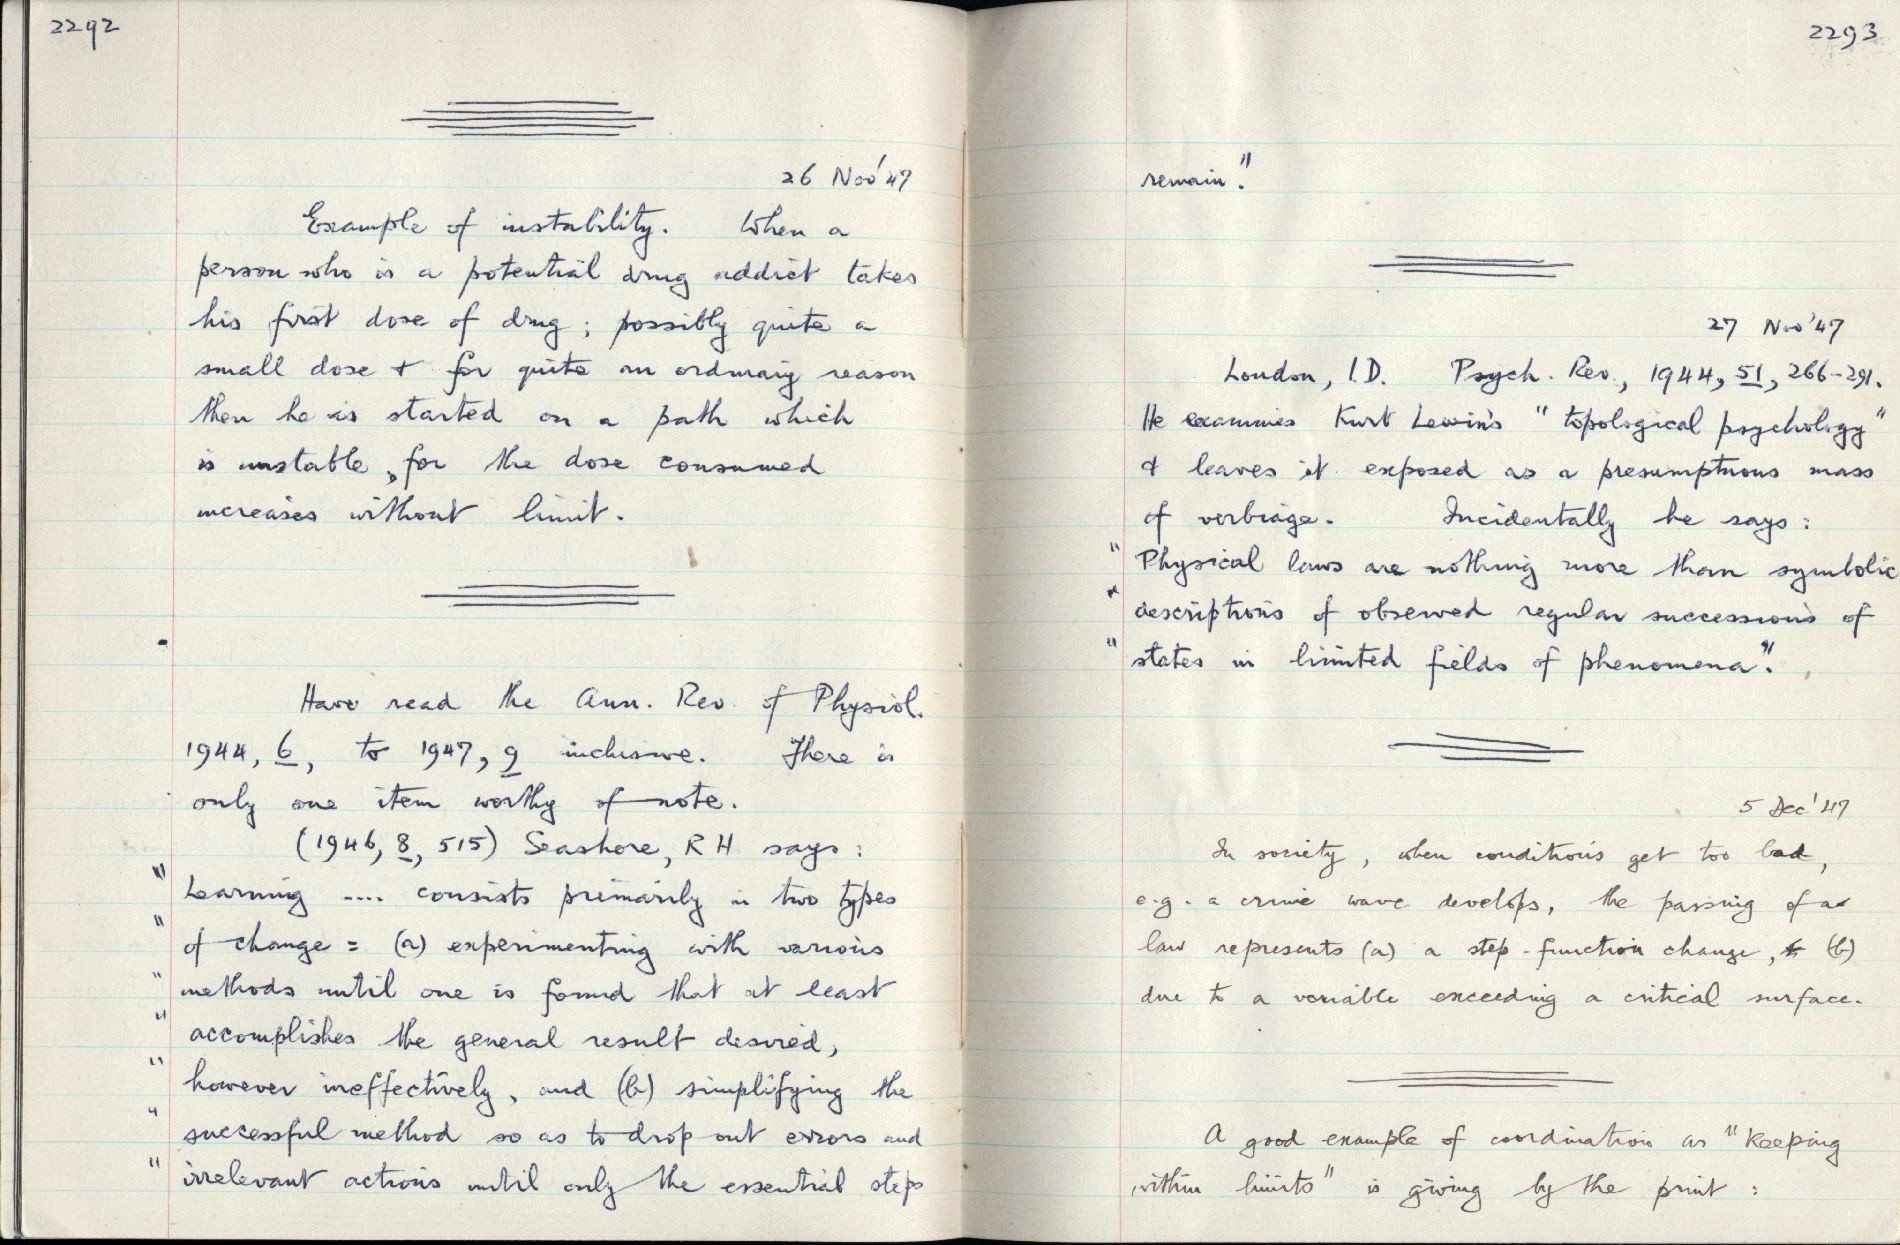 2292
26 Nov '47
Example of instability. When a
person who is a potential drug addict takes
his first dose of drug; possibly quite a
small dose & for quite an ordinary reason
then he is started on a path which
is unstable, for the dose consumed
increases without limit.
Have read the Ann. Rev. of Physiol.
1944, 6, to 1947, 9 inclusive. There is
only one item worthy of note.
(1946, 8, 515) Seashore, R H says:
" Learning .... consists primarily in two types
" of change = (a) experimenting with various
" methods until one is found that at least
" accomplishes the general result desired,
" however ineffectively, and (b) simplifying the
" successful method so as to drop out errors and
" irrelevant actions until only the essential steps
2293
remain."
27 Nov '47
London, I.D. Psych. Rev., 1944, 51, 266-291.
He examines Kurt Lewin's "topological psychology"
& leaves it exposed as a presumptuous mass
of verbiage. Incidentally he says:
" Physical laws are nothing more than symbolic
" descriptions of observed regular successions of
" states in limited fields of phenomena".
5 Dec '47
In society, when conditions get too bad,
e.g. a crime wave develops, the passing of a
law represents (a) a step-function change, (b)
due to a variable exceeding a critical surface.
A good example of coordination as "keeping
within limits" is giving by the print: